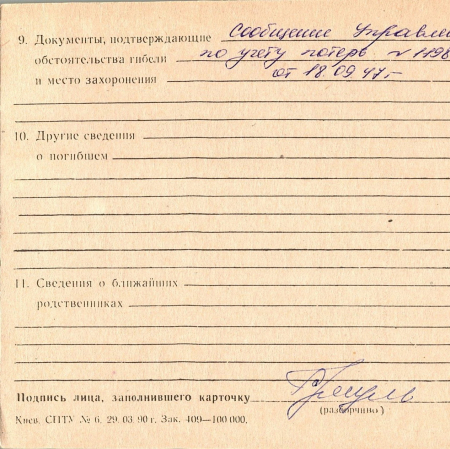 9. Документы, подтверждающие Сообщение Управле
обстоятельства гибели по учету потерь № 1198
и место захоронения от 18.09.47 г
10. Другие сведения
о погибшем
11. Сведения о ближайших
родственниках
Подпись лица, заполнившего карточку
(разборчиво)
Киев. СПТУ № 6. 29. 03. 90 г. Зак. 409—100 000.